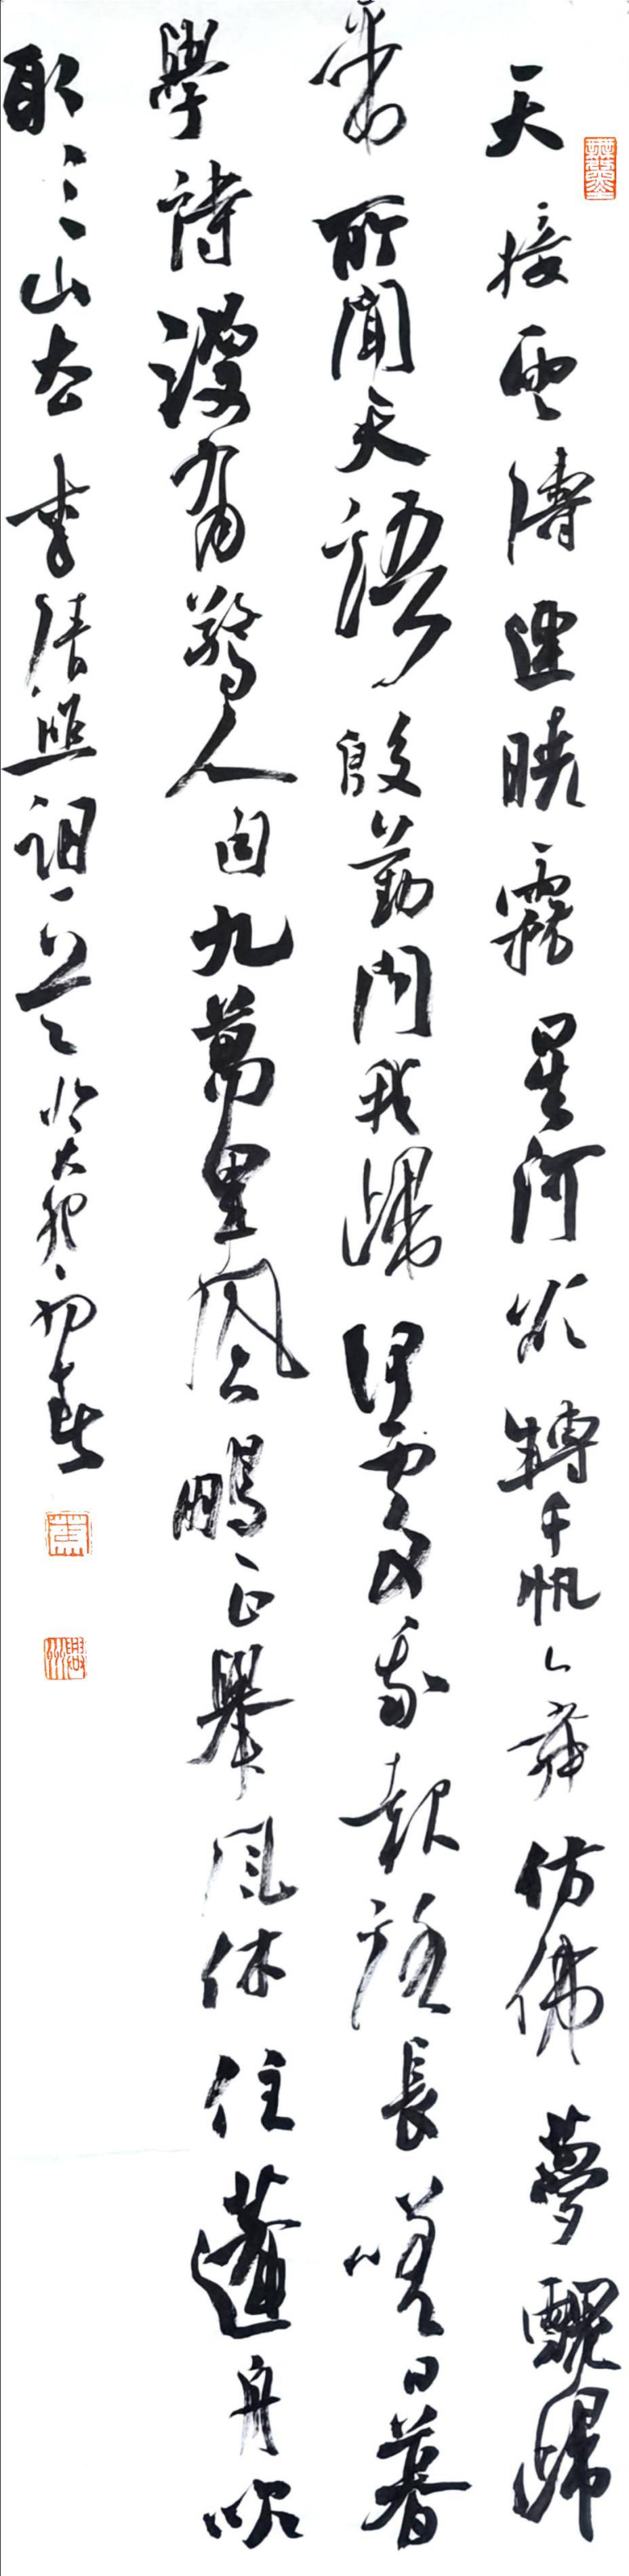 天接雲濤連曉霧星河欲轉千帆舞仿佛夢魂歸
帝所聞天語殷勤問我歸何處我報路長嗟日暮
學詩漫有驚人句九萬里風鵬正舉風休住蓬舟吹
取三山去李清照詞一首初春